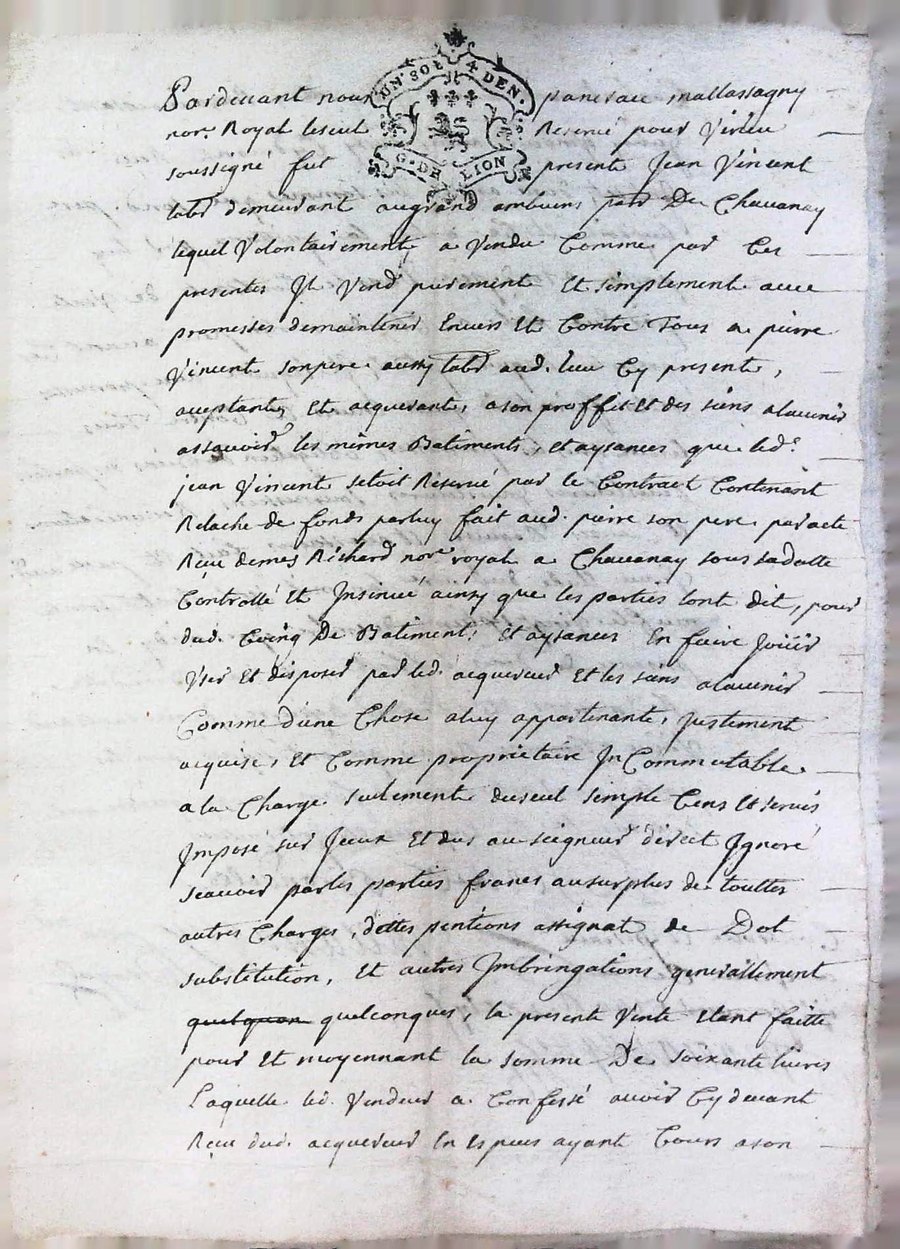 UN SOL 4 DEN.
G. DE LION
Pardevant nous pancrace mallassagny
nore. Royal leseul Reservé pour Virieu
soussigné fut present Jean Vincent
labr demeurant augrand ambuent parr De Chavanay
lequel Volontairement a Vendu Comme par Ces
presentes Jl Vend purement Et simplement avec
promesses demaintenir Envers Et Contre Tous a pierre
Vincent sonpere aussy labr aud. lieu Cy present,
aceptant, Et acquerant, ason proffit Et des siens alavenir
assavoir les mêmes Batiments, et aysances que led.
jean Vincent setoit Reservé par le Contract Contenant
Relache de fonds parluy fait aud. pierre son pere par acte
Reçu de me Richard nore royal a Chavanay sous sadatte
Controllé Et Insinué ainsy que les parties lont dit, pour
dud. De Batiment, Et aysances En faire Joüir
User Et disposer par led. acquereur Et les siens alavenir
Comme d'une Chose aluy appartenante, justement
acquise, Et Comme proprietaire InCommutable
a la Charge seulement duseul simple Cens Et servis
Imposé sur Jceux Et dus au seigneur direct Jgnoré
scavoir parles parties francs ausurplus de touttes
autres Charges, dettes pentions assignat de Dot
substitution, Et autres Imbringations generallement
quelquon quelconques, la presente Vente Etant faitte
pour Et moyennant la somme De soixante livres
Laquelle led. Vendeur a Confessé avoir Cydevant
Reçu dud. acquereur En Especes ayant Cours ason